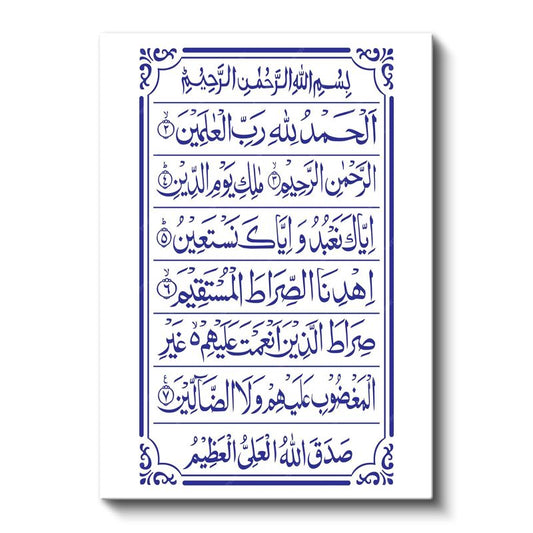 بِسْمِ اللهِ الرَّحْمٰنِ الرَّحِيْمِ
اَلْحَمْدُ لِلّٰهِ رَبِّ الْعٰلَمِيْنَ ۲
الرَّحْمٰنِ الرَّحِيْمِ ۳ مٰلِكِ يَوْمِ الدِّيْنِ ٤
اِيَّاكَ نَعْبُدُ وَ اِيَّاكَ نَسْتَعِيْنُ ٥
اِهْدِنَا الصِّرَاطَ الْمُسْتَقِيْمَ ٦
صِرَاطَ الَّذِيْنَ اَنْعَمْتَ عَلَيْهِمْ ە غَيْرِ
الْمَغْضُوْبِ عَلَيْهِمْ وَلَا الضَّآلِّيْنَ ٧
صَدَقَ اللهُ الْعَلِىُّ الْعَظِيْمُ